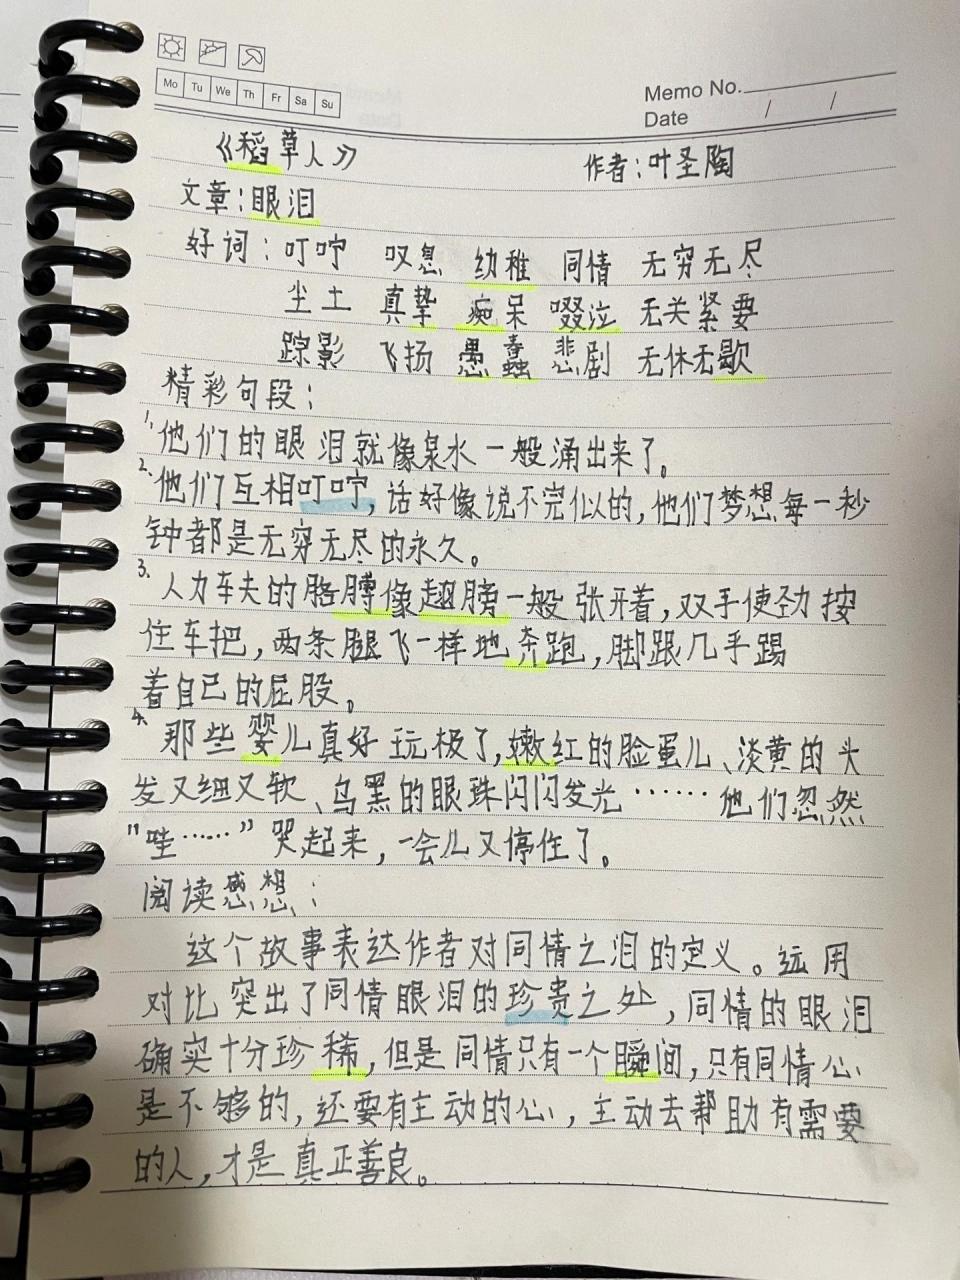 Mo Tu We Th Fr Sa Su
Memo No.
Date / /
《稻草人》 作者:叶圣陶
文章:眼泪
好词:叮咛 叹息 幼稚 同情 无穷无尽
尘土 真挚 痴呆 啜泣 无关紧要
踪影 飞扬 愚蠢 悲剧 无休无歇
精彩句段:
1.他们的眼泪就像泉水一般涌出来了。
2.他们互相叮咛,话好像说不完似的,他们梦想每一秒
钟都是无穷无尽的永久。
3.人力车夫的胳膊像翅膀一般张开着,双手使劲按
住车把,两条腿飞一样地奔跑,脚跟几乎踢
着自己的屁股。
4.那些婴儿真好玩极了,嫩红的脸蛋儿、淡黄的头
发又细又软、乌黑的眼珠闪闪发光……他们忽然
“哇……”哭起来,一会儿又停住了。
阅读感想:
这个故事表达作者对同情之泪的定义。运用
对比突出了同情眼泪的珍贵之处,同情的眼泪
确实十分珍稀,但是同情只有一个瞬间,只有同情心
是不够的,还要有主动的心,主动去帮助有需要
的人,才是真正善良。